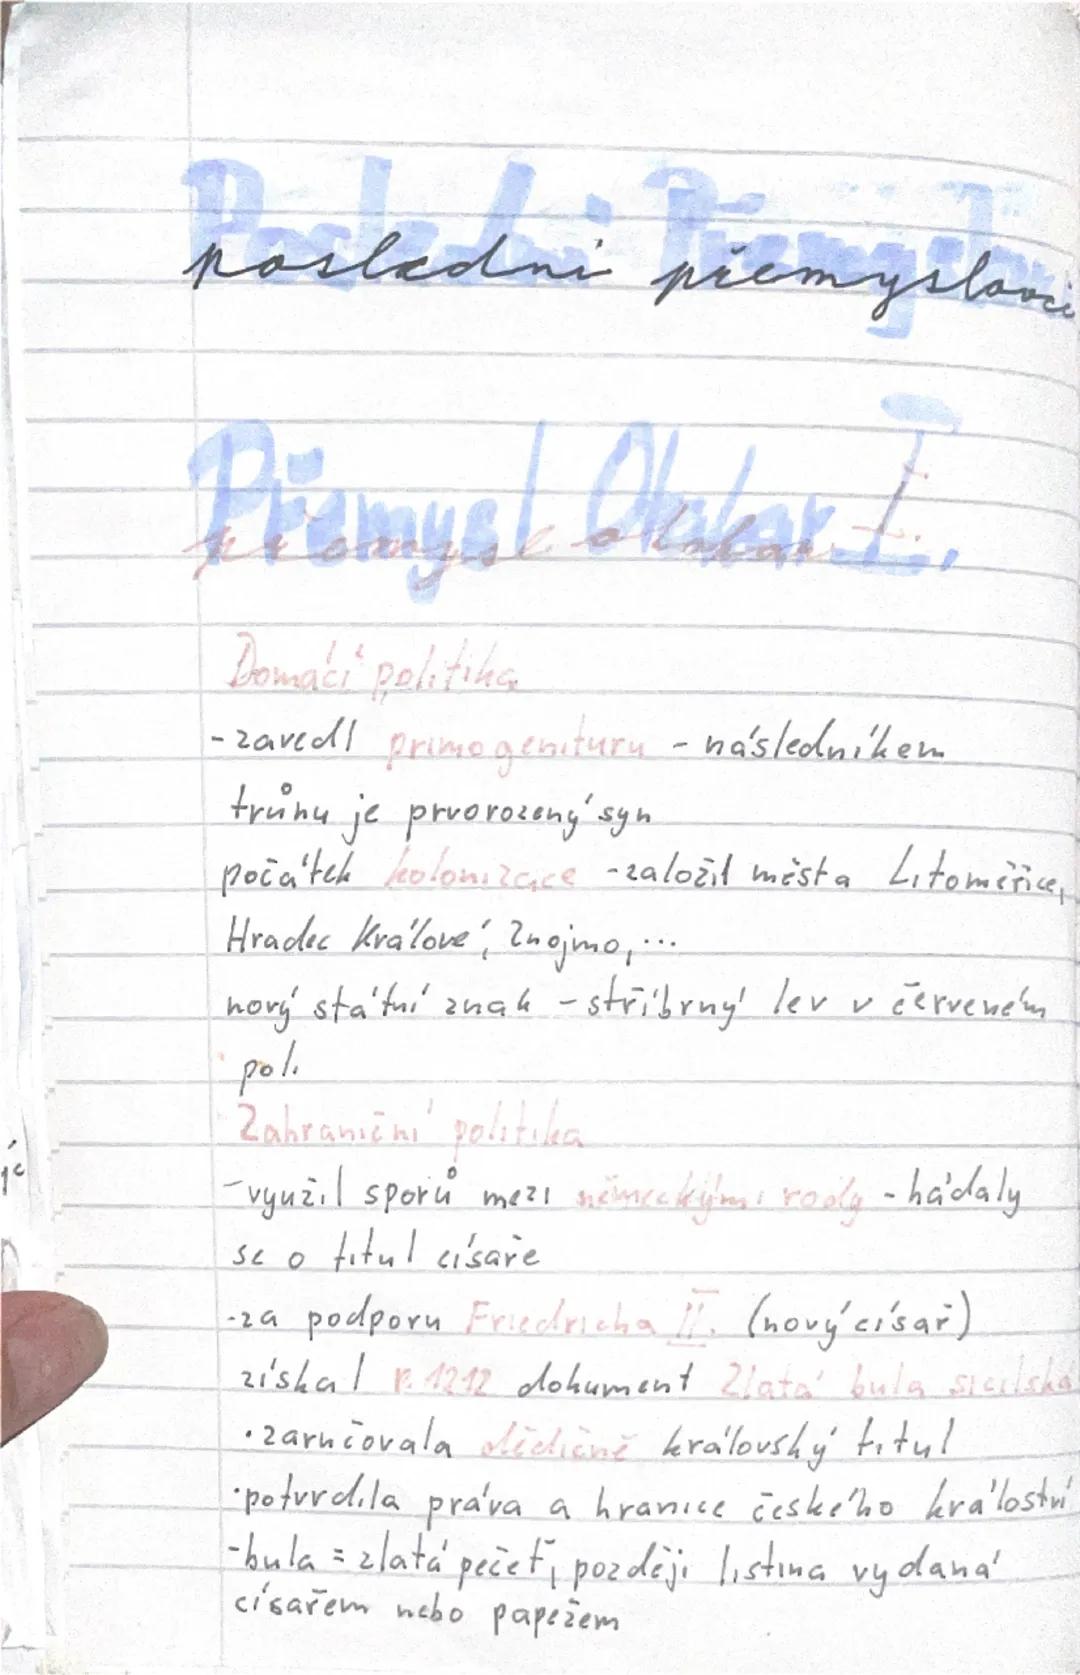 Poslední Přemyslovci
poslední přemyslovci
Přemysl Otakar I.
přemysl otakar I.
Domácí politika
- zavedl primogenituru - následníkem
trůnu je prvorozený syn
počátek kolonizace - založil města Litoměřice,
Hradec Králové, Znojmo,...
nový státní znak - stříbrný lev v červeném
poli
Zahraniční politika
- využil sporů mezi německými rody - hádaly
se o titul císaře
- za podporu Friedricha II. (nový císař)
získal r. 1212 dokument Zlatá bula sicilská
• zaručovala dědičně královský titul
• potvrdila práva a hranice českého království
- bula = zlatá pečeť, později listina vydaná
císařem nebo papežem